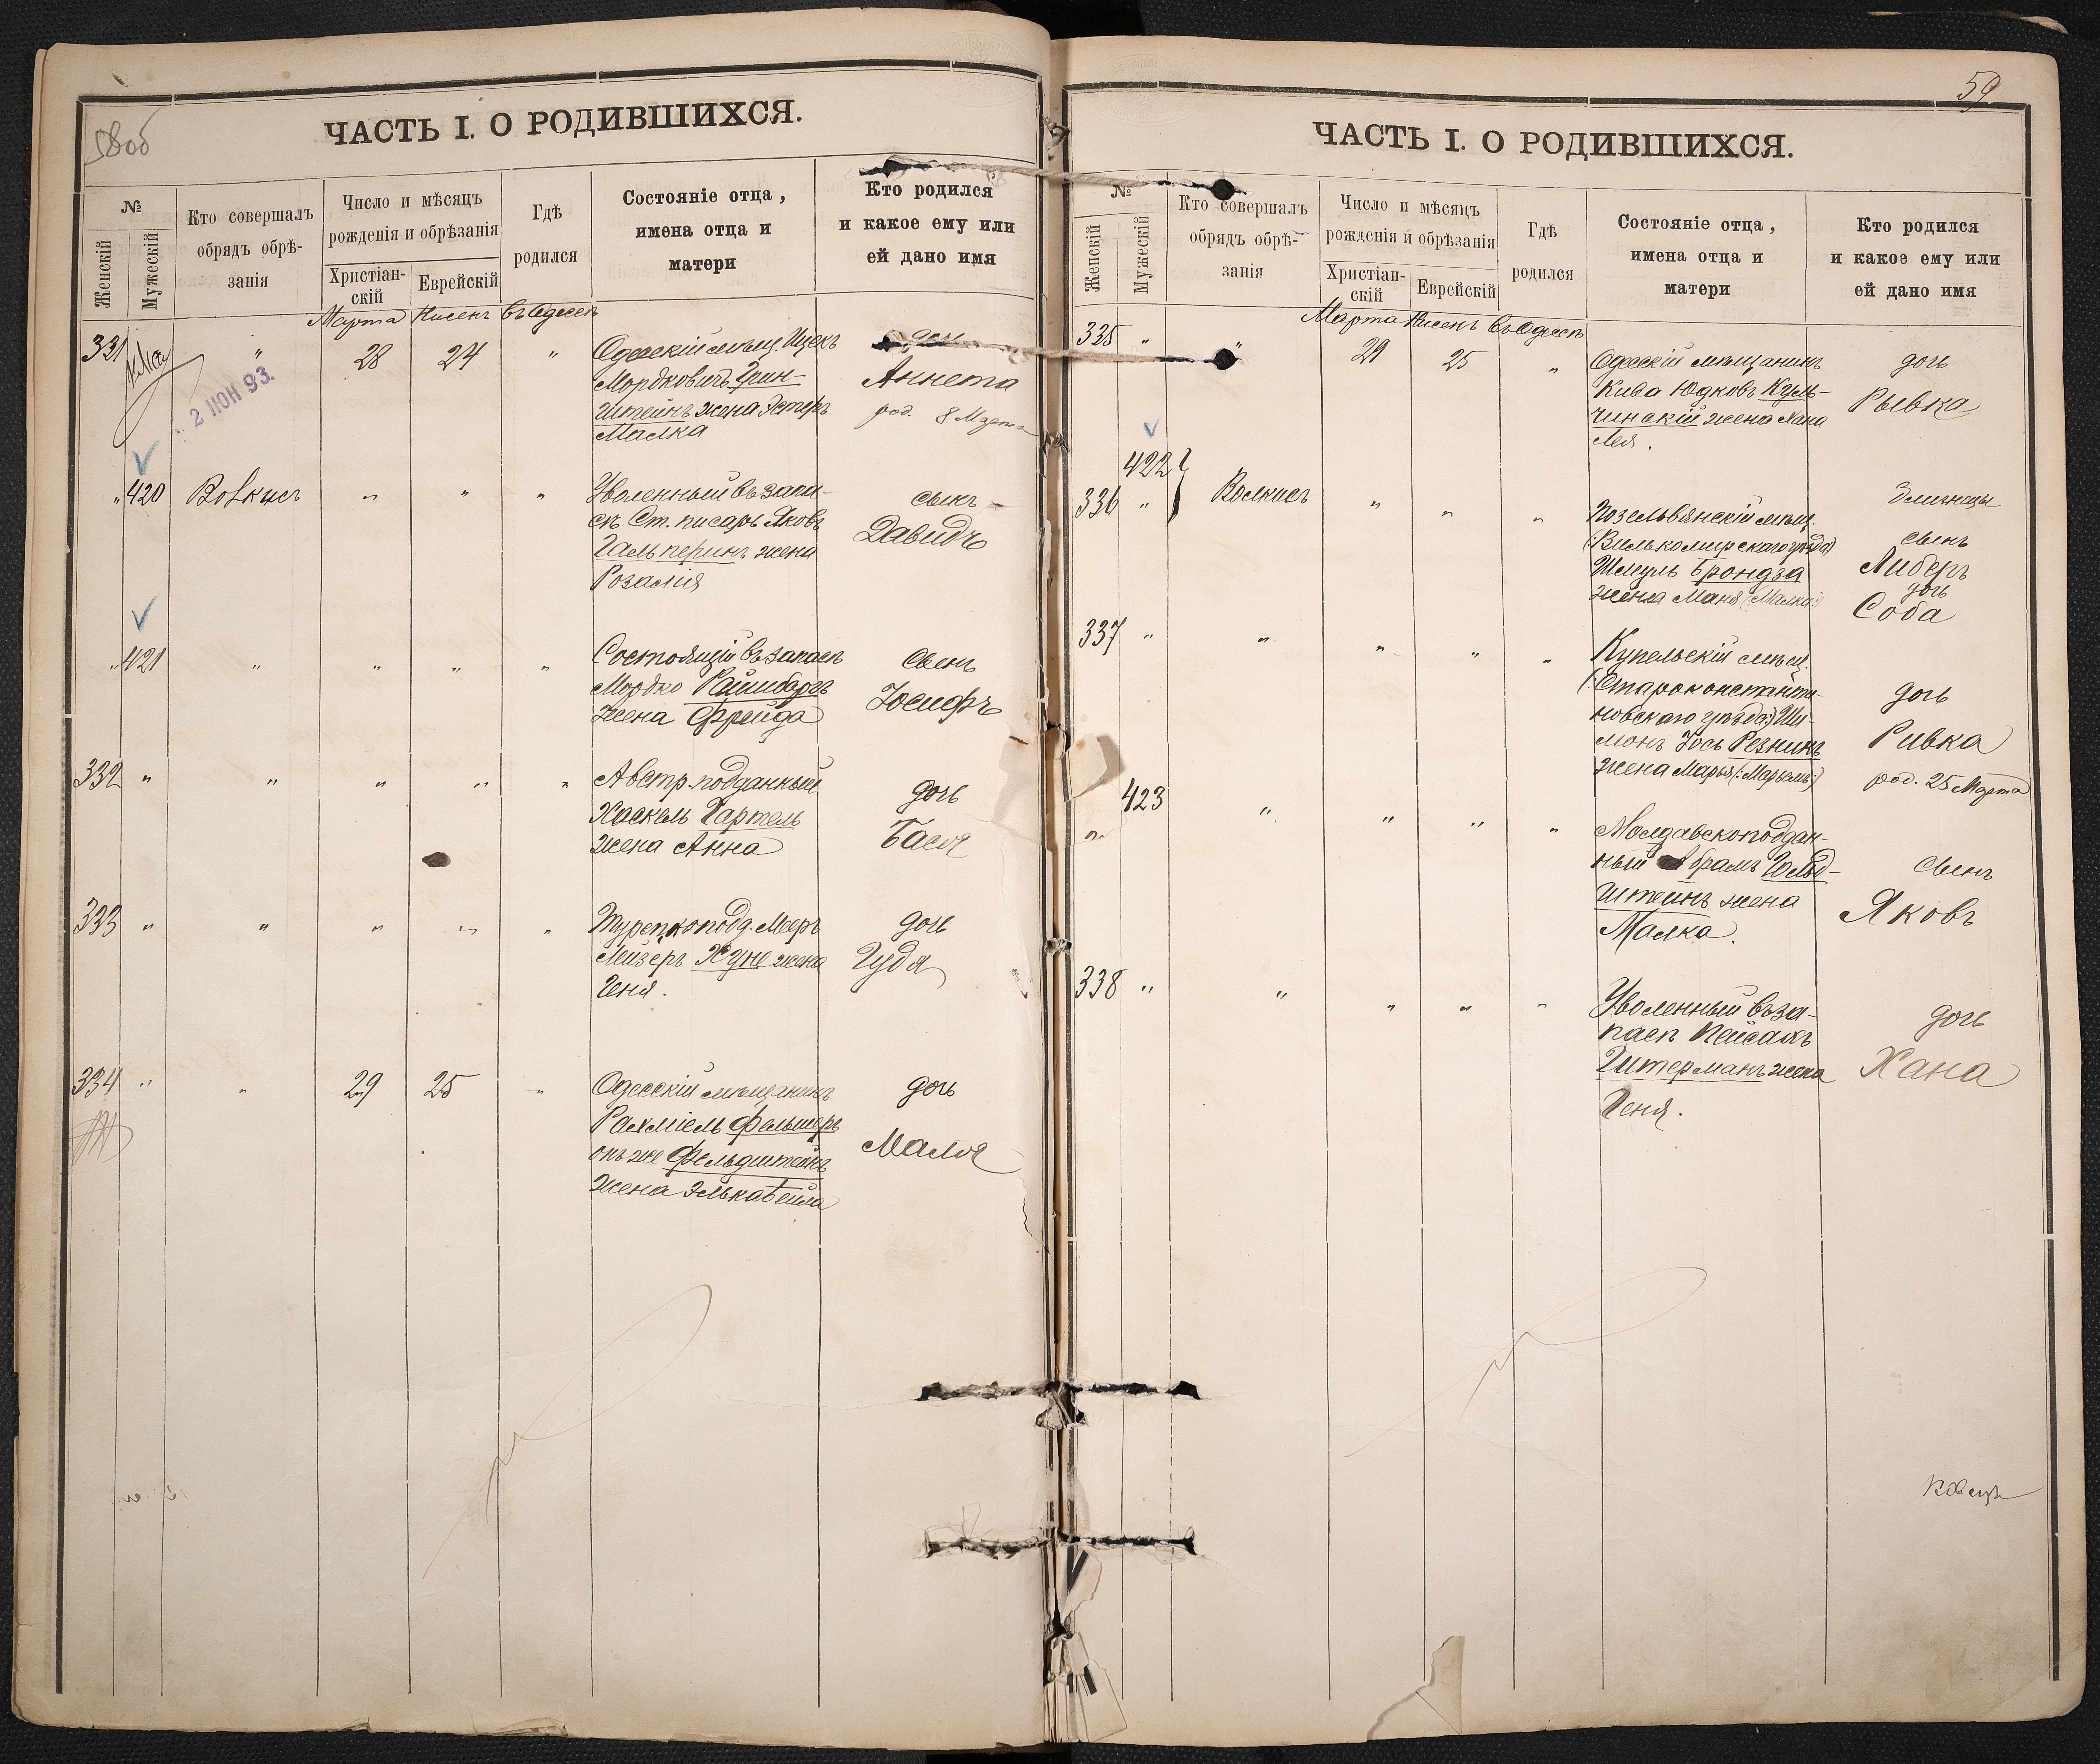 58об
ЧАСТЬ I. О РОДИВШИХСЯ.
№
Женскій
Мужескій
Кто совершалъ
обрядъ обрѣ-
занія
Число и мѣсяцъ
рожденія и обрѣзанія
Христіан-
скій
Еврейскій
Гдѣ
родился
Состояніе отца,
имена отца и
матери
Кто родился
и какое ему или
ей дано имя
Марта Нисенъ въ Одессѣ
331 " 28 24 "
2 ИЮН 93.
Одесскій мѣщ. Ицекъ
Мордковичъ Грин-
штейнъ жена Эстеръ
Малка
дочь
Аннета
род. 8 Марта
" 420 Волкисъ " " "
Уволенный въ запа-
съ Ст. писарь Яковъ
Гальперинъ жена
Розалія
сынъ
Давидъ
" 421 " " " "
Состоящій въ запасѣ
Мордко
жена Фрейда
Сынъ
Іосифъ
332 " " " " "
Австр. подданный
Хаскель Гартель
жена Анна
дочь
Бася
333 " " " " "
Турецкоподд. Мееръ
Лейзеръ Хуне жена
Геня.
дочь
Гудя
334 " " 29 25 "
Одесскій мѣщанинъ
Рахміель Фельшеръ
онъ же Фельдштейнъ
жена Элька Бейла
дочь
Маля
59
ЧАСТЬ I. О РОДИВШИХСЯ.
№
Женскій
Мужескій
Кто совершалъ
обрядъ обрѣ-
занія
Число и мѣсяцъ
рожденія и обрѣзанія
Христіан-
скій
Еврейскій
Гдѣ
родился
Состояніе отца,
имена отца и
матери
Кто родился
и какое ему или
ей дано имя
Марта Нисенъ въ Одессѣ
335 " " 29 25 "
Одесскій мѣщанинъ
Кива Юдковъ Куль-
чинскій жена Хана
Лея.
дочь
Рывка
422
336 " Волкисъ " " "
Позельвянскій мѣщ.
(Вилькомирскаго уѣзда)
Шмуль Брондза
жена Маня (Малка)
близнецы
сынъ
Либеръ
дочь
Соба
337 " " " " "
Купельскій мѣщ.
(Староконстанти-
новскаго уѣзда) Ши-
монъ Іось Резникъ
жена Марья (:Марьямъ:)
дочь
Ривка
род. 25 Марта
423
" " " " "
Молдавскоподдан-
ный Абрамъ Гольд-
штейнъ жена
Малка.
Сынъ
Яковъ
338 " " " " "
Уволенный въ за-
пасъ Пейсахъ
Гитерманъ жена
Геня.
дочь
Хана